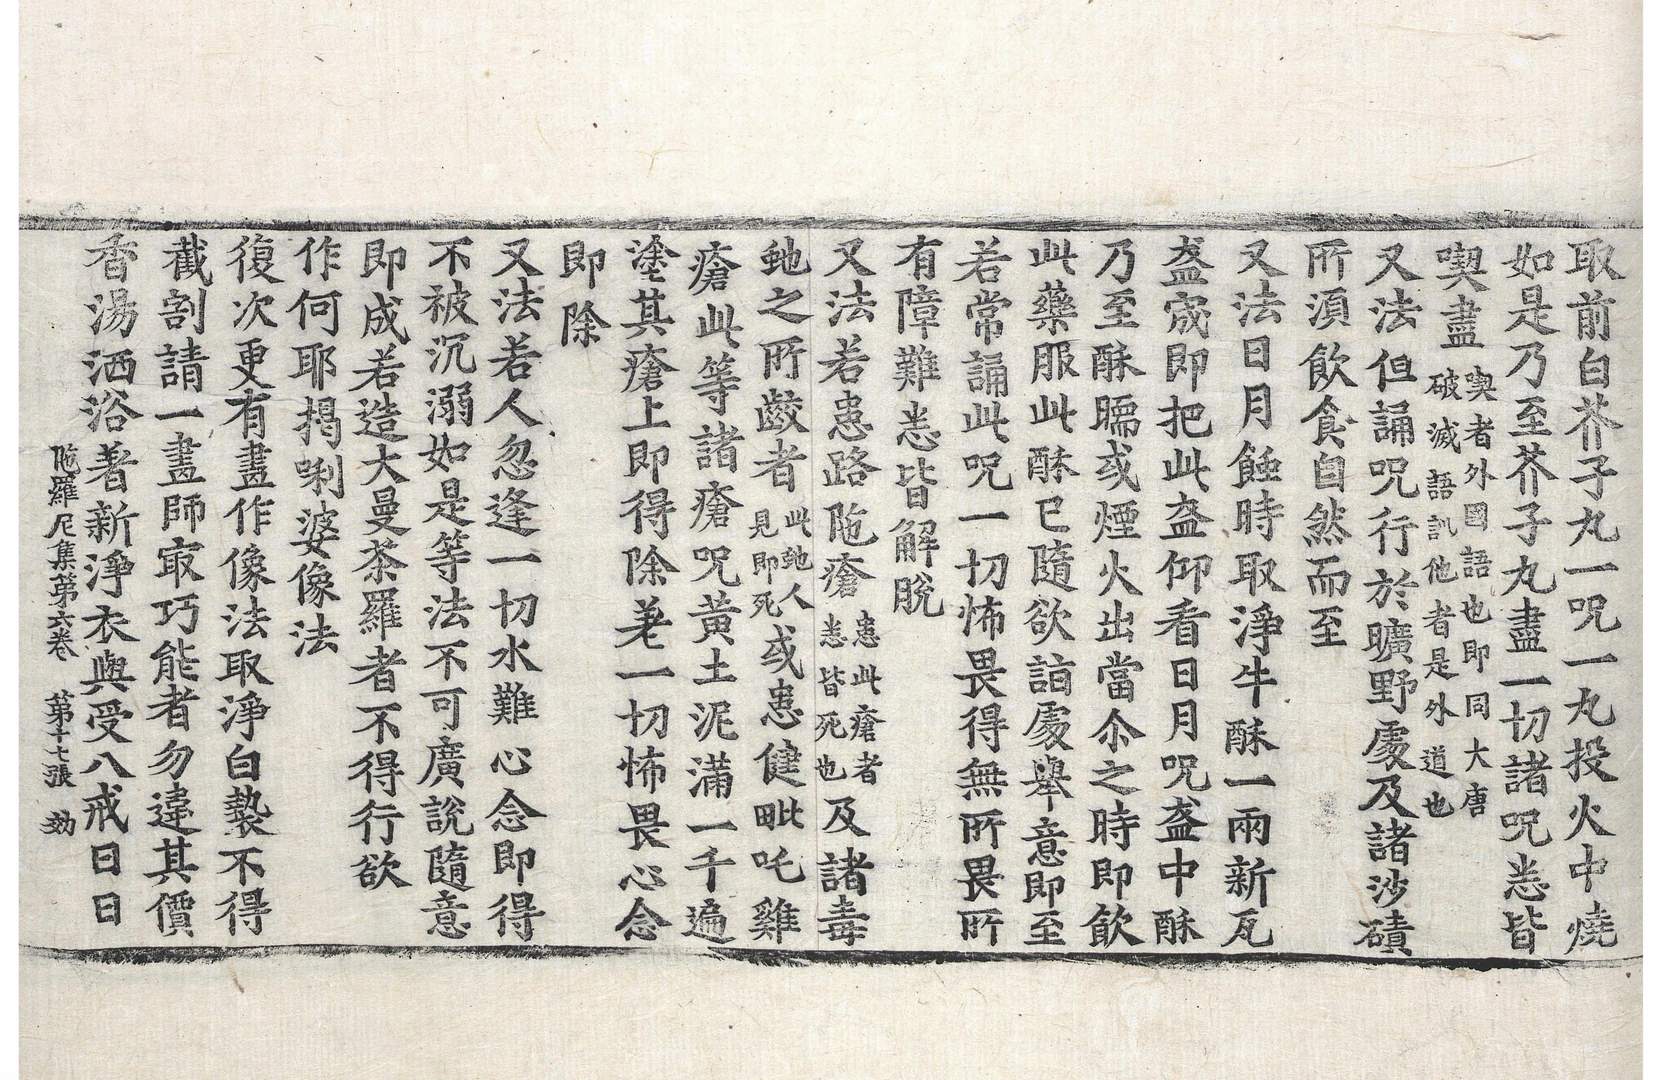 取前白芥子丸一呪一丸投火中燒
如是乃至芥子丸盡一切諸呪悉皆
喫盡喫者外國語也即同大唐破滅語訊他者是外道也
又法但誦呪行於曠野處及諸沙磧
所湏飲食自然而至
又法日月蝕時取淨牛酥一兩新瓦
盔宬即把此盔仰看日月呪盔中酥
乃至酥暖或煙火出當尒之時即飲
此藥服此酥已隨欲詣處舉意即至
若常誦此呪一切怖畏得無所畏所
有障難悉皆解脫
又法若患路陁瘡患此瘡者悉皆死也及諸毒
虵之所齩者此虵人見即死或患健毗吒雞
瘡此等諸瘡呪黃土泥滿一千遍
塗其瘡上即得除差一切怖畏心念
即除
又法若人忽逢一切水難心念即得
不被沉溺如是等法不可廣說隨意
即成若造大曼茶羅者不得行欲
作何耶揭唎婆像法
復次更有畫作像法取淨白㲲不得
截割請一畫師㝡巧能者勿違其價
香湯洒浴著新淨衣與受八戒日日
陁羅尼集第六卷　第十七張　効